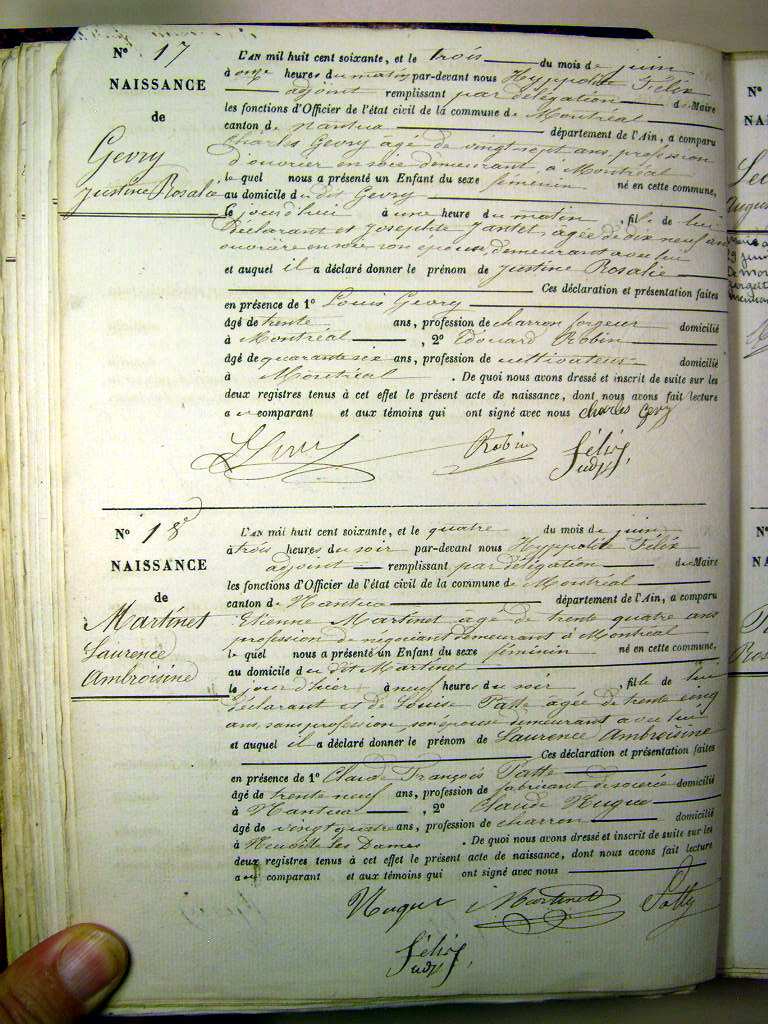 N° 17
NAISSANCE
de
Gevry
Justine Rosalie
L'AN mil huit cent soixante, et le trois du mois de juin
à onze heures du matin par-devant nous Hyppolite Félix
adjoint remplissant par délégation de Maire
les fonctions d'Officier de l'état civil de la commune de Montréal
canton de Nantua département de l'Ain, a comparu
Charles Gevry agé de vingt sept ans, profession
d'ouvrier en soie demeurant à Montréal
le quel nous a présenté un Enfant du sexe féminin né en cette commune,
au domicile du dit Gevry
le jourd'hui à une heure du matin, fille de lui
déclarant et Josephte Jantet, agée de dix neuf ans
ouvrière en soie son épouse, demeurant avec lui
et auquel il a déclaré donner le prénom de Justine Rosalie
Ces déclaration et présentation faites
en présence de 1° Louis Gevry
âgé de trente ans, profession de charron forgeur domicilié
à Montréal, 2° Edouard Robin
âgé de quarante six ans, profession de cultivateur domicilié
à Montréal. De quoi nous avons dressé et inscrit de suite sur les
deux registres tenus à cet effet le présent acte de naissance, dont nous avons fait lecture
au comparant et aux témoins qui ont signé avec nous Charles Gevry
LGevry Robin Félix
adj.
N° 18
NAISSANCE
de
Martinet
Laurence
Ambroisine
L'AN mil huit cent soixante, et le quatre du mois de juin
à trois heures du soir par-devant nous Hyppolite Félix
adjoint remplissant par délégation de Maire
les fonctions d'Officier de l'état civil de la commune de Montréal
canton de Nantua département de l'Ain, a comparu
Etienne Martinet âgé de trente quatre ans
profession de négociant demeurant à Montréal
le quel nous a présenté un Enfant du sexe féminin né en cette commune,
au domicile du dit Martinet
le jour d'hier à neuf heures du soir, fille de lui
déclarant et de Louise Patte agée de trente cinq
ans, sans profession, son épouse demeurant avec lui
et auquel il a déclaré donner le prénom de Laurence Ambroisine
Ces déclaration et présentation faites
en présence de 1° Claude François Patte
âgé de trente neuf ans, profession de fabricant de soierie domicilié
à Nantua, 2° Claude Nugue
âgé de vingt quatre ans, profession de charron domicilié
à Neuville les Dames. De quoi nous avons dressé et inscrit de suite sur les
deux registres tenus à cet effet le présent acte de naissance, dont nous avons fait lecture
au comparant et aux témoins qui ont signé avec nous
Nugue Martinet Patte
Félix
adj.
N°
NA